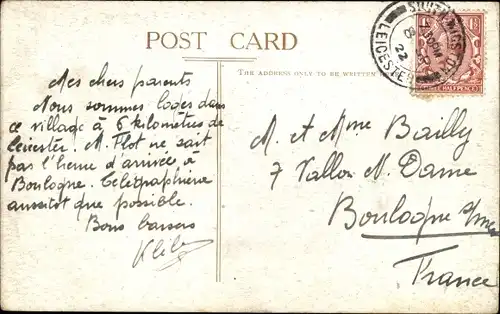 POST CARD
THE ADDRESS ONLY TO BE WRITTEN
LEICESTER
22
THREE HALFPENCE
Mes chers parents
Nous sommes logés dans
ce village à 6 kilomètres de
Leicester. M. Flot ne sait
pas l'heure d'arrivée à
Boulogne. Telegraphierai
aussitot que possible.
Bons baisers
M. et Mme Bailly
7 Vallon N. Dame
Boulogne s/mer
France